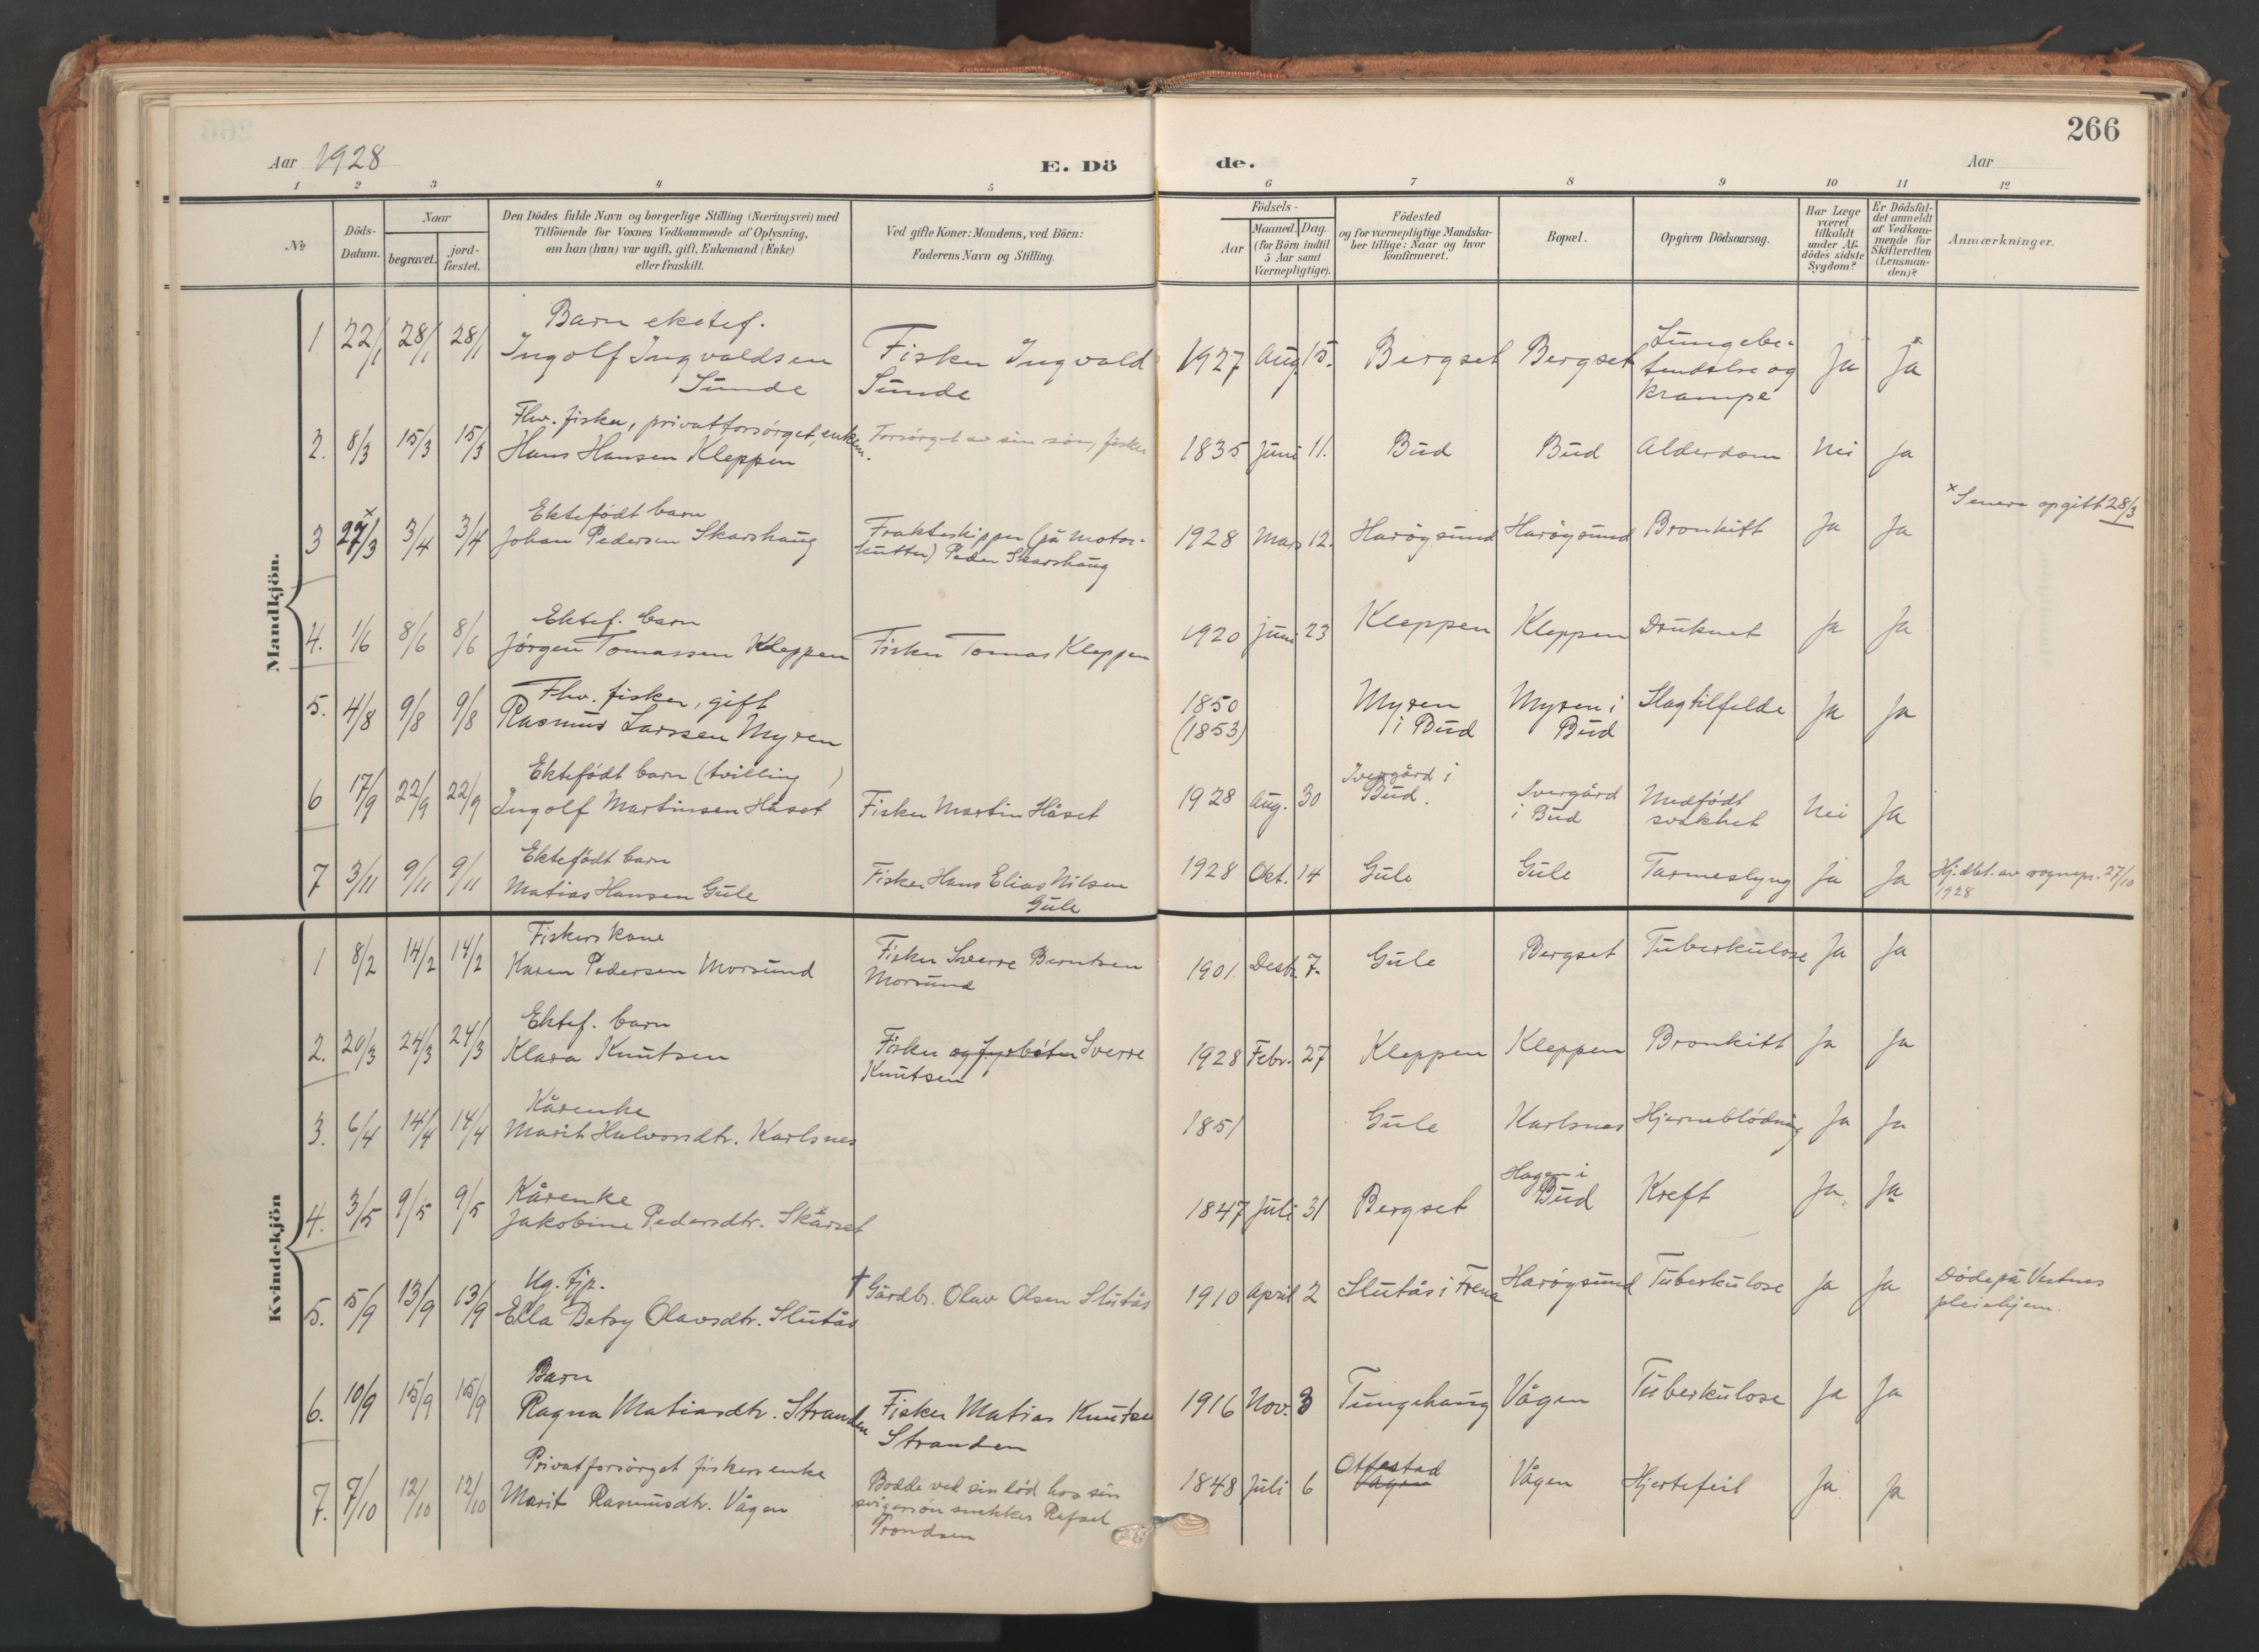 266
Aar 1928 E. Dö de. Aar
1 2 3 4 5 6 7 8 9 10 11 12
№
Döds-
Datum.
Naar
begravet.
jord-
fæstet.
Den Dödes fulde Navn og borgerlige Stilling (Næringsvei) med
Tilföiende for Voxnes Vedkommende af Oplysning,
om han (hun) var ugift, gift, Enkemand (Enke)
eller fraskilt.
Ved gifte Koner: Mandens, ved Börn:
Faderens Navn og Stilling.
Födsels-
Aar
Maaned. Dag.
(for Börn indtil
5 Aar samt
Værnepligtige).
Födested
og for værnepligtige Mandska-
ber tillige: Naar og hvor
konfirmeret.
Bopæl.
Opgiven Dödsaarsag.
Har Læge
været
tilkaldt
under Af-
dödes sidste
Sygdom?
Er Dödsfal-
det anmeldt
af Vedkom-
mende for
Skifteretten
(Lensman-
den)?
Anmærkninger.
Mandkjön.
1 22/1 28/1 28/1
Barn ektef.
Ingolf Ingvaldsen
Sunde
Fisker Ingvald
Sunde
1927 Aug. 15. Bergset Bergset
Lungebe-
tendelse og
krampe
Ja Ja
2. 8/3 15/3 15/3
Fhv. fisker, privatforsörget, enkem.
Hans Hansen Kleppen
Forsörget av sin sön, fisker
1835 Juni 11. Bud Bud Alderdom Nei Ja
3 27/3 x 3/4 3/4
Ektefödt barn
Johan Pedersen Skarshaug
Frakteskipper (på motor-
kutter) Peder Skarshaug
1928 Mars 12. Haröysund Haröysund Bronkitt Ja Ja
x Senere opgitt 28/3
4. 1/6 8/6 8/6
Ektef. barn
Jörgen Tomassen Kleppen
Fisker Tomas Kleppen
1920 Juni 23 Kleppen Kleppen Druknet Ja Ja
5. 4/8 9/8 9/8
Fhv. fisker, gift
Rasmus Larssen Myren
1850
(1853)
Myren
i Bud
Myren i
Bud
Slagtilfelde Ja Ja
6 17/9 22/9 22/9
Ektefödt barn (tvilling)
Ingolf Martinsen Håset
Fisker Martin Håset
1928 Aug. 30
Ivergård i
Bud.
Ivergård
i Bud
Medfödt
svakhet
Nei Ja
7 3/11 9/11 9/11
Ektefödt barn
Matias Hansen Gule
Fisker Hans Elias Nilsen
Gule
1928 Okt. 14 Gule Gule Tarmeslyng Ja Ja
Hj.döbt. av sognepr. 27/10
1928
Kvindekjön
1 8/2 14/2 14/2
Fiskers kone
Karen Pedersen Morsund
Fisker Sverre Berntsen
Morsund
1901. Desbr. 7. Gule Bergset Tuberkulose Ja Ja
2. 20/3 24/3 24/3
Ektef. barn
Klara Knutsen
Fisker og fyrböter Sverre
Knutsen
1928 Febr. 27 Kleppen Kleppen Bronkitt Ja Ja
3. 6/4 14/4 14/4
Kårenke
Marit Halvorsdtr. Karlsnes
1851 Gule Karlsnes Hjerneblödning Ja Ja
4. 3/5 9/5 9/5
Kårenke
Jakobine Pedersdtr. Skårset
1847 Juli 31 Bergset
Hagen i
Bud
Kreft Ja Ja
5. 5/9 13/9 13/9
Ug. tjp.
Ella Betsy Olavsdtr. Slutås
† Gårdbr. Olav Olsen Slutås
1910 April 2 Slutås i Frena Haröysund Tuberkulose Ja Ja
Döde på Vestnes
pleiehjem.
6. 10/9 15/9 15/9
Barn
Ragna Matiasdtr. Stranden
Fisker Matias Knutsen
Stranden
1916 Nov. 3 Tungehaug Vågen Tuberkulose Ja Ja
7. 7/10 12/10 12/10
Privatforsörget fiskersenke
Marit Rasmusdtr. Vågen
Bodde ved sin död hos sin
svigersön snekker Rafael
Trondsen
1848 Juli 6
Ottestad
Vågen
Vågen Hjertefeil Ja Ja